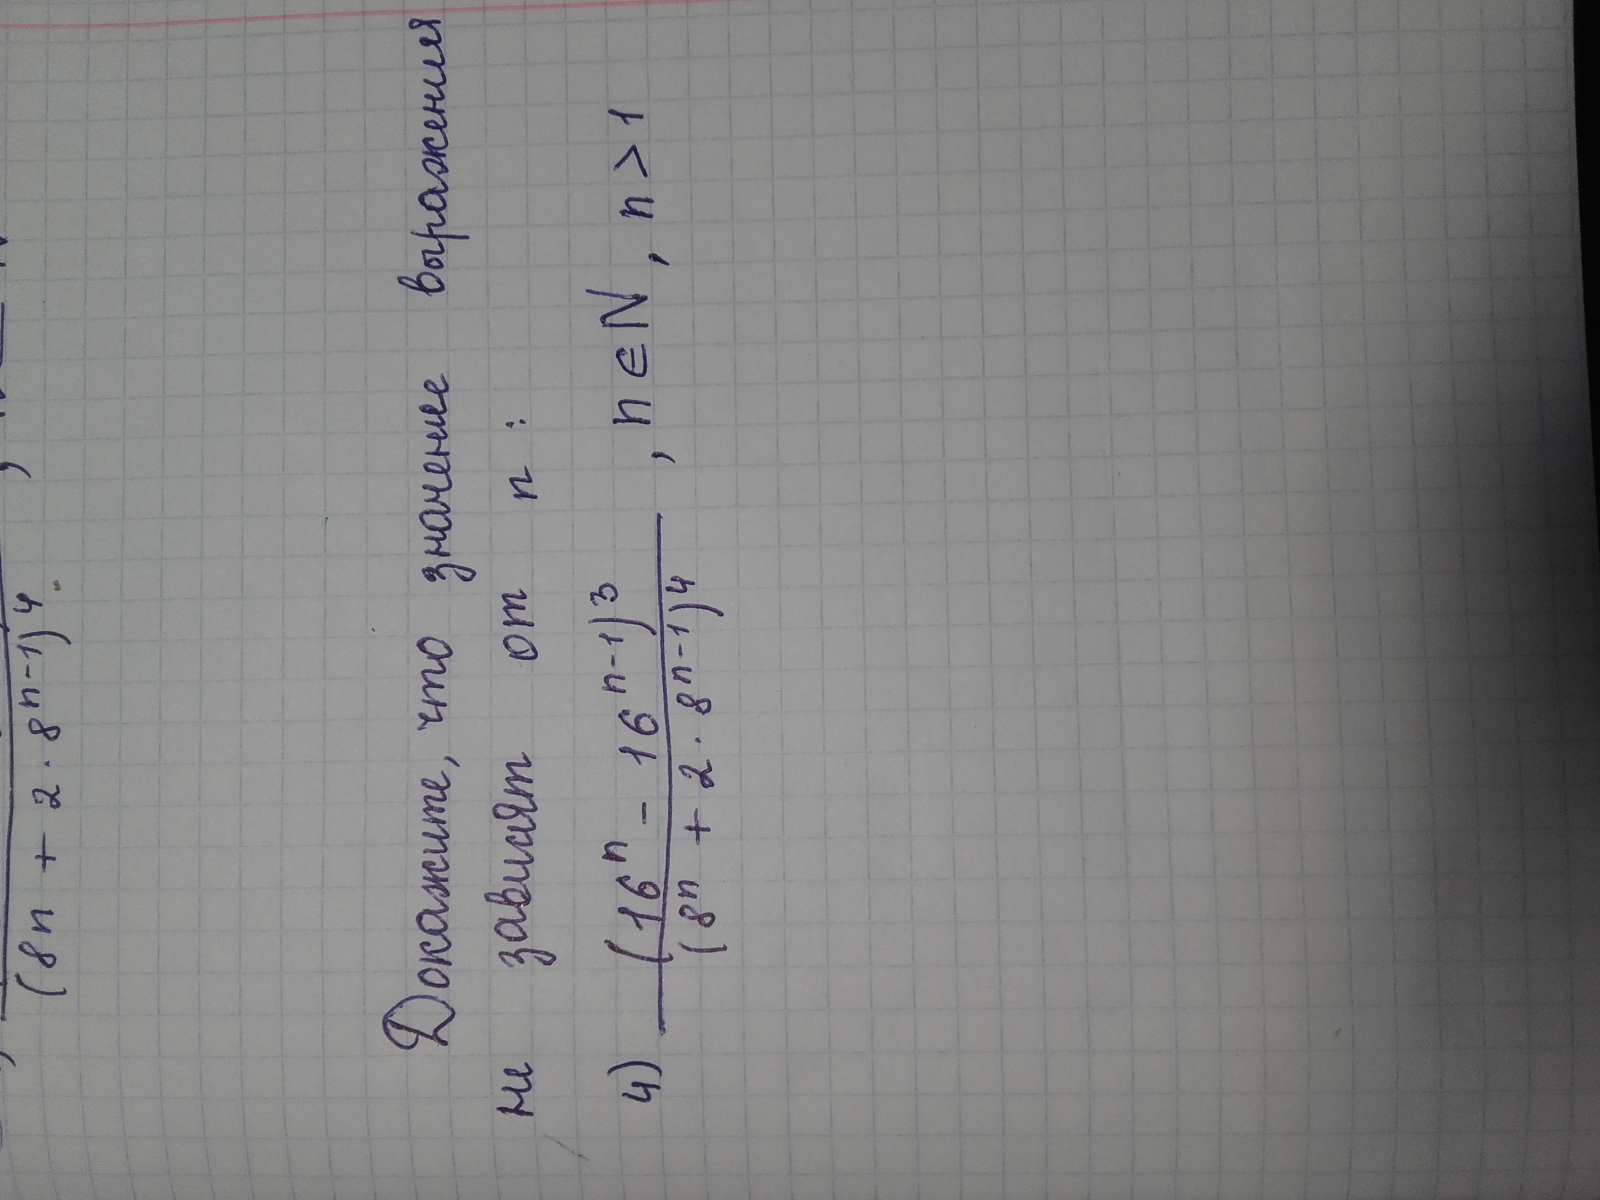 (8n + 2 · 8^{n-1})^4
Докажите, что значение выражения
не зависят от n :
4) \frac{(16^n - 16^{n-1})^3}{(8^n + 2 · 8^{n-1})^4} , n ∈ N , n > 1